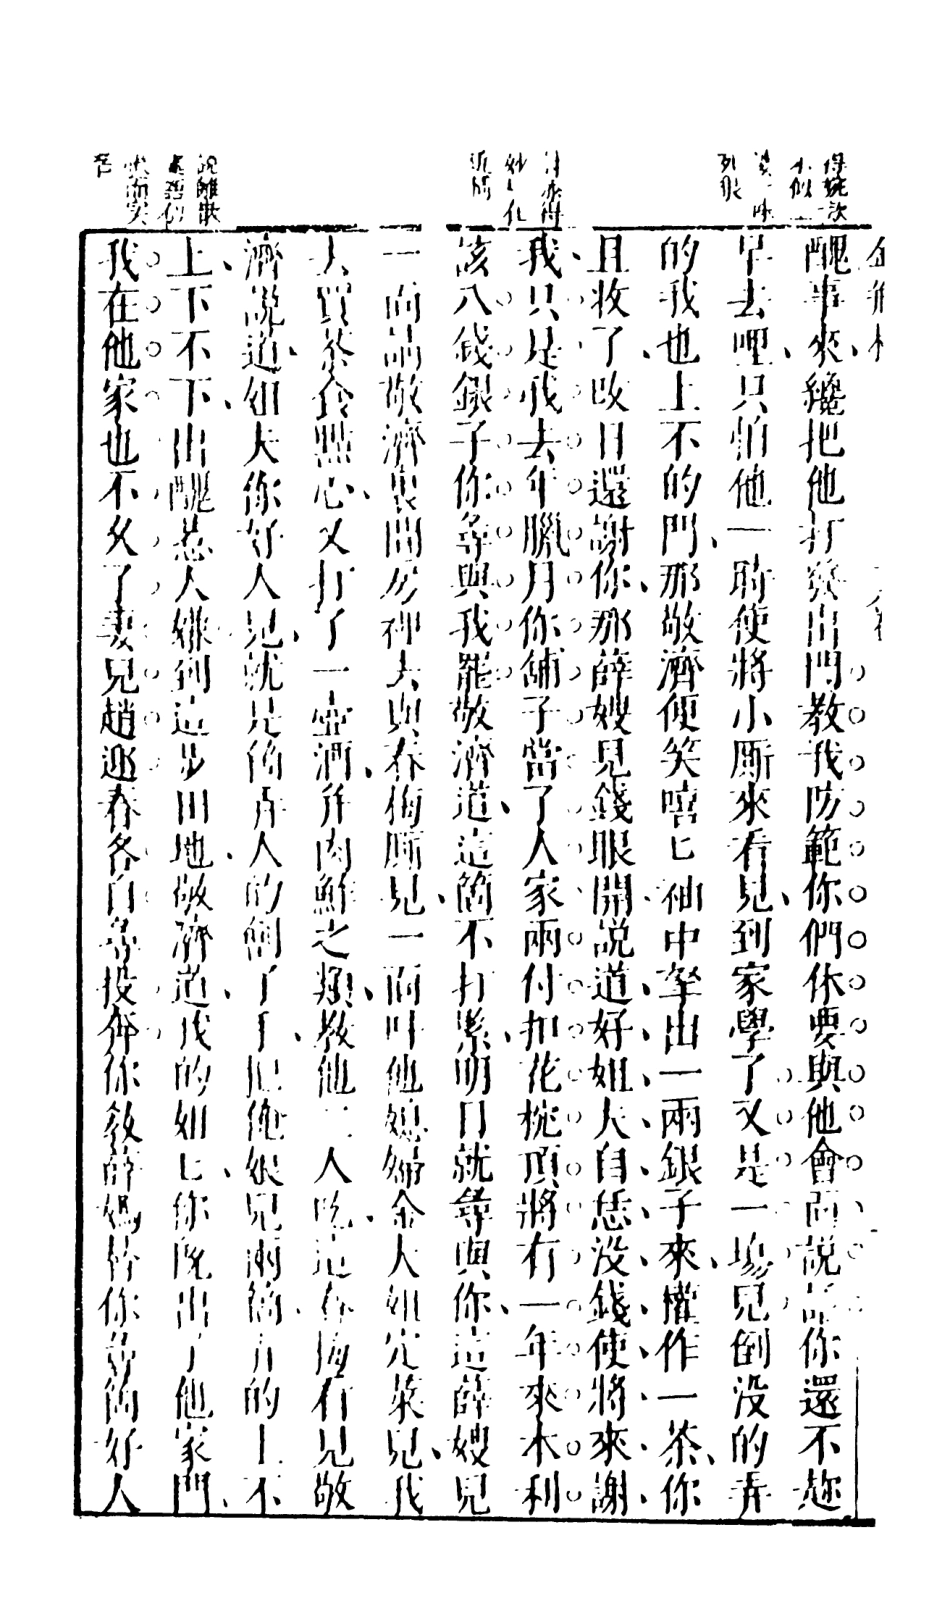 金瓶梅
醜事來纔把他打發出門教我防範你們休要與他會面說話你還不趂
早去哩只怕他一時使將小厮來看見到家學了又是一塲兒倒没的弄
的我也上不的門那敬濟便笑嘻匕袖中拏出一兩銀子來權作一茶你
且收了改日還謝你那薛嫂見錢眼開說道好姐夫自恁没錢使將來謝
我只是我去年臘月你舖子當了人家兩付扣花枕頂將有一年來本利
該八錢銀子你尋與我罷敬濟道這箇不打緊明日就尋與你這薛嫂兒
一面請敬濟裏間房裡去與春梅厮見一面叫他媳婦金大姐定菜兒我
去買茶食點心又打了一壺酒并肉鮓之類教他二人吃這春梅看見敬
濟說道姐夫你好人兒就是箇弄人的劊子手把俺娘兒兩箇弄的上不
上下不下出醜惹人嫌到這步田地敬濟道我的姐匕你既出了他家門
我在他家也不久了妻兒趙迎春各自尋投奔你教薛媽替你尋箇好人